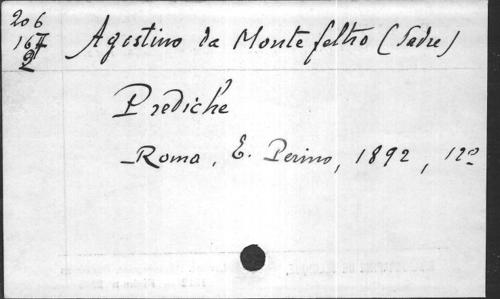 206
16 F
2
Agostino da Montefeltro (Padre)
Prediche
Roma, E. Perino, 1892, 12º